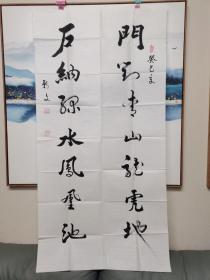 癸巳夏
門對青山龍虎地
戶納綠水鳳凰池